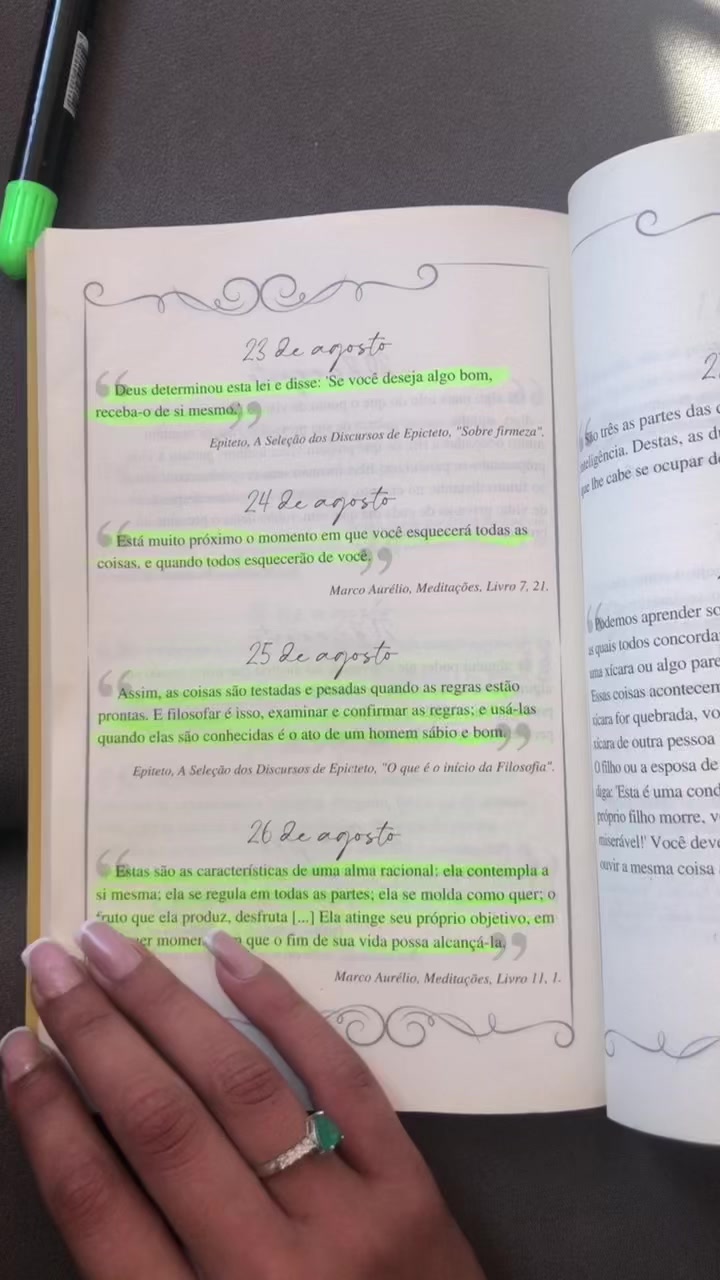 23 de agosto
Deus determinou esta lei e disse: 'Se você deseja algo bom,
receba-o de si mesmo.'
Epiteto, A Seleção dos Discursos de Epicteto, "Sobre firmeza".
24 de agosto
Está muito próximo o momento em que você esquecerá todas as
coisas, e quando todos esquecerão de você.
Marco Aurélio, Meditações, Livro 7, 21.
25 de agosto
Assim, as coisas são testadas e pesadas quando as regras estão
prontas. E filosofar é isso, examinar e confirmar as regras; e usá-las
quando elas são conhecidas é o ato de um homem sábio e bom.
Epiteto, A Seleção dos Discursos de Epicteto, "O que é o início da Filosofia".
26 de agosto
Estas são as características de uma alma racional: ela contempla a
si mesma; ela se regula em todas as partes; ela se molda como quer; o
fruto que ela produz, desfruta [...] Ela atinge seu próprio objetivo, em
que o fim de sua vida possa alcançá-la.
Marco Aurélio, Meditações, Livro 11, 1.
São três as partes das
inteligência. Destas, as
que lhe cabe se ocupar
Podemos aprender
as quais todos
uma xícara ou algo
Essas coisas
xícara for quebrada,
xícara de outra pessoa
O filho ou a esposa de
diga: 'Esta é uma
próprio filho morre,
miserável!' Você
ouvir a mesma coisa